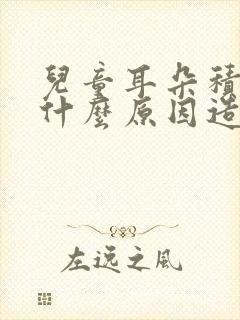 兒童耳朵積
什麼原因造
左逸之風